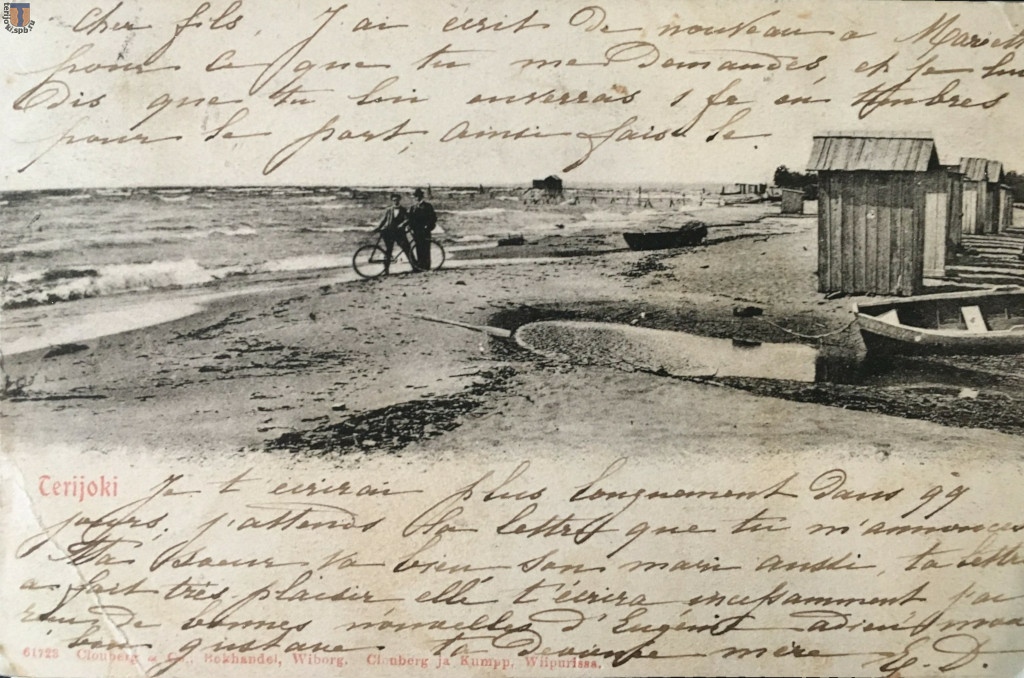 terijoki.spb.ru
Cher fils, J'ai ecrit de nouveau a
pour ce que tu me demandes, et je lui
dis que tu lui enverras 1 fr en timbres
pour le port, ainsi fais le.
Terijoki
Je t'ecrirai plus longuement dans qq
jours, j'attends la lettre que tu m'annonces
Ta soeur va bien son mari aussi, ta lettre
a fait très plaisir elle t'écrira incessamment j'ai
reçu de bonnes nouvelles d'Eugénie adieu mon
bien Gustave ta devouée mère E. D.
61723 Clouberg & Co., Bokhandel, Wiborg. Clouberg ja Kumpp, Wiipurissa.